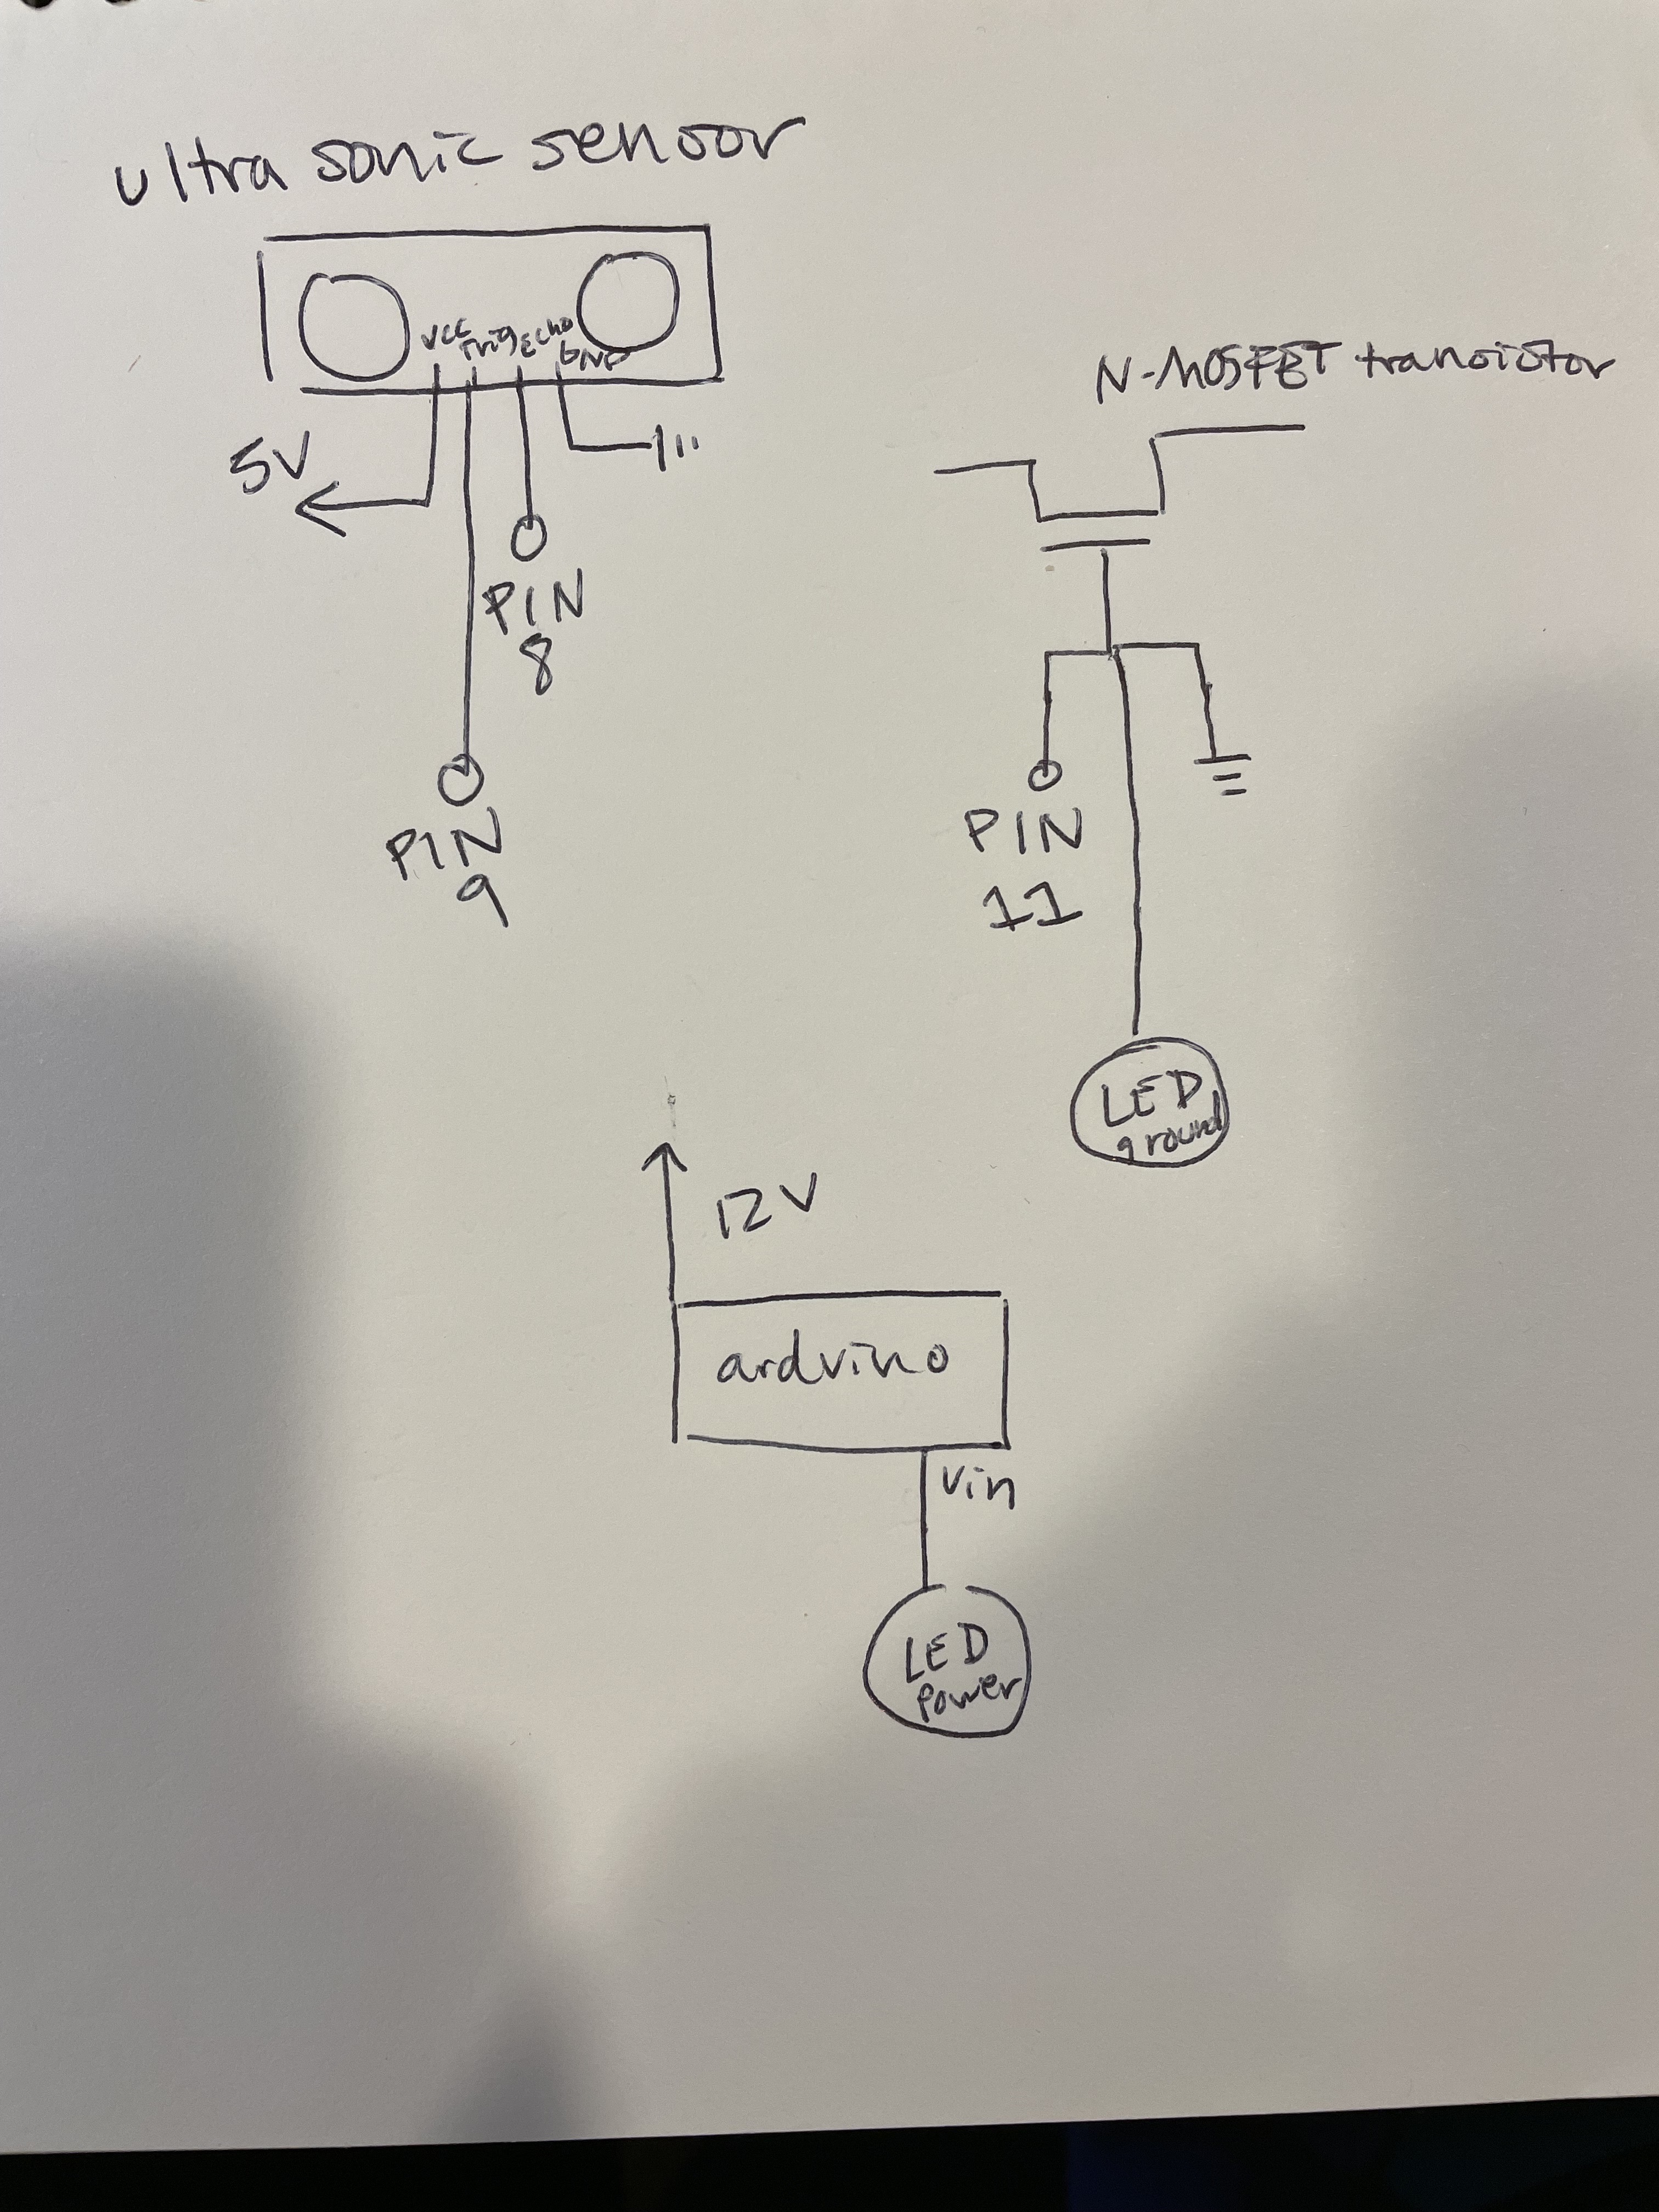 ultra sonic sensor
VCC
Trig
Echo
GND
5V
PIN
8
PIN
9
N-MOSFET transistor
PIN
11
LED
ground
12V
arduino
Vin
LED
Power